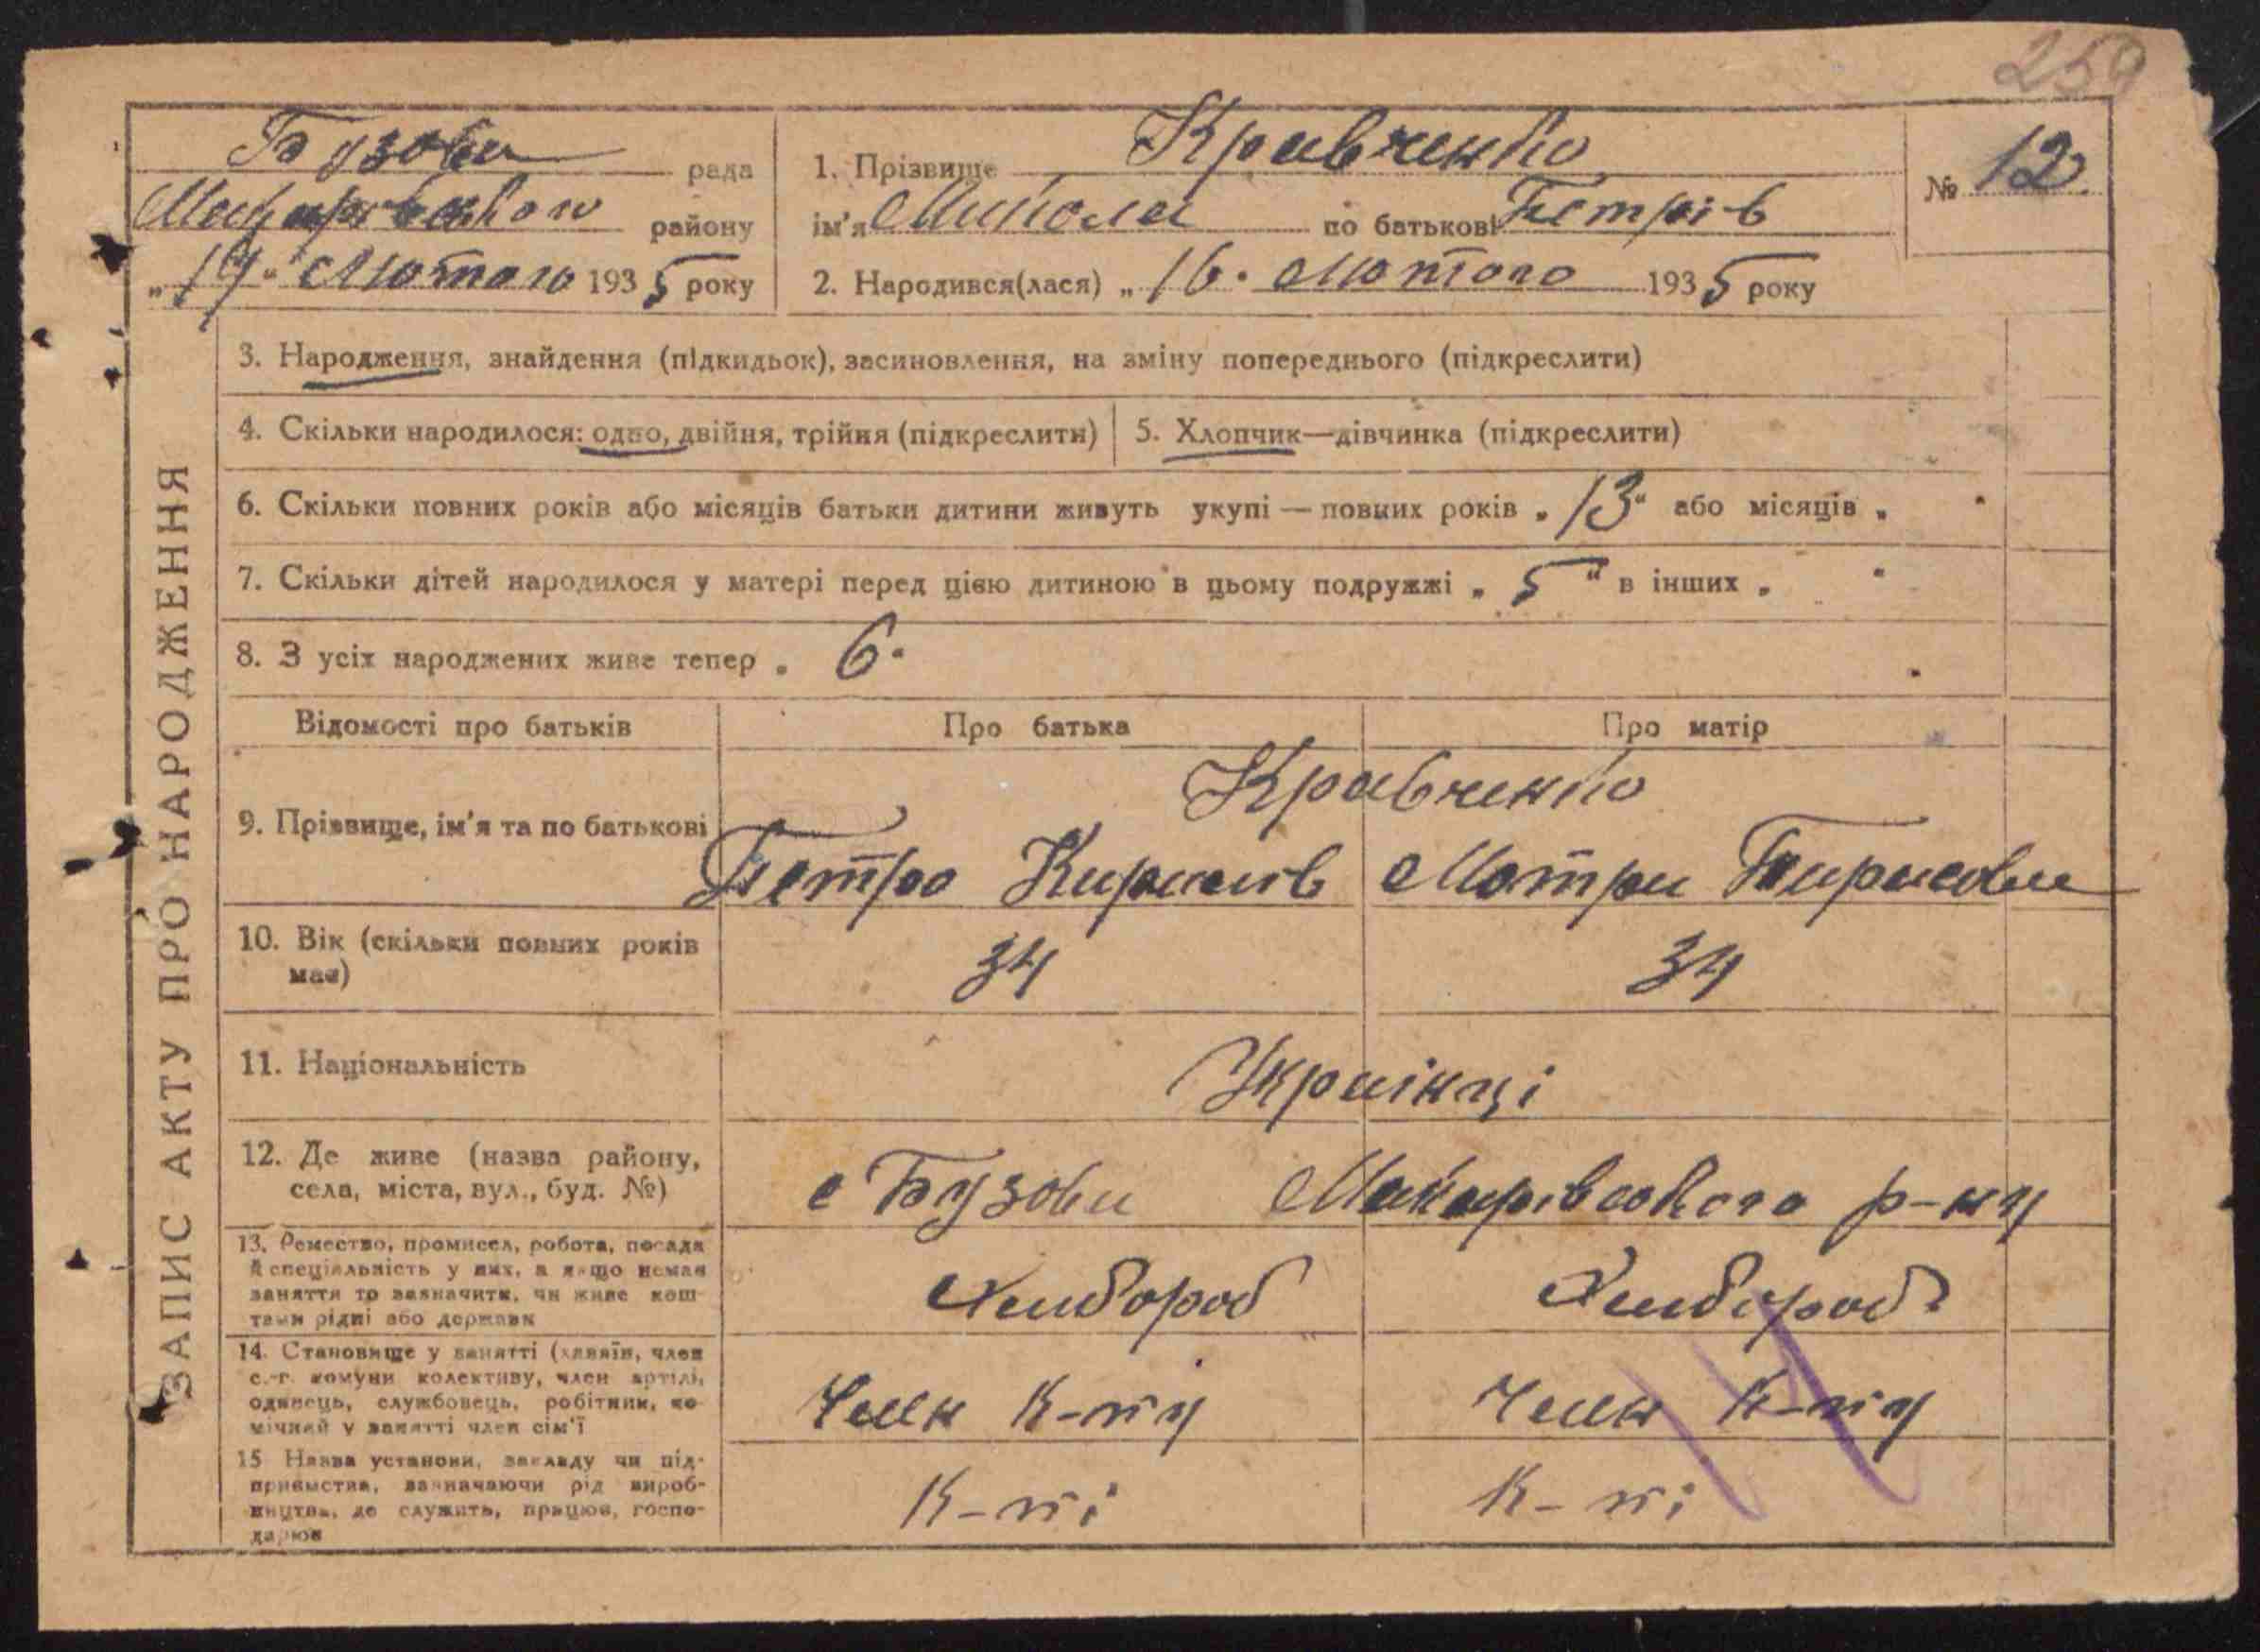 259
Бузова рада
Макарівського району
„19" Лютого 1935 року
1. Прізвище Кравченко
ім'я Микола по батькові Петрів
2. Народився(лася) „16" Лютого 1935 року
№ 12
ЗАПИС АКТУ ПРО НАРОДЖЕННЯ
3. Народження, знайдення (підкидьок), засиновлення, на зміну попереднього (підкреслити)
4. Скільки народилося: одно, двійня, трійня (підкреслити)
5. Хлопчик—дівчинка (підкреслити)
6. Скільки повних років або місяців батьки дитини живуть укупі — повних років „13" або місяців „ "
7. Скільки дітей народилося у матері перед цією дитиною в цьому подружжі „5" в інших „ "
8. З усіх народжених живе тепер „ 6 "
Відомості про батьків
Про батька
Про матір
9. Прізвище, ім'я та по батькові
Кравченко
Петро Кирилів
Мотря
10. Вік (скільки повних років
має)
34
34
11. Національність
Українці
12. Де живе (назва району,
села, міста, вул., буд. №)
с Бузова Макарівського р-ну
13. Ремество, промисел, робота, посада
й спеціяльність у них, а якщо немає
заняття то зазначити, чи живе кош-
тами рідні або держави
Хлібороб
Хлібороб
14. Становище у занятті (хазяїн, член
с.-г. комуни колективу, член артілі,
одинець, службовець, робітник, по-
мічний у занятті член сім'ї
Член К-ту
Член К-ту
15 Назва установи, закладу чи під-
приємства, зазначаючи рід вироб-
ництва, де служить, працює, госпо-
дарює
К-ті
К-ті